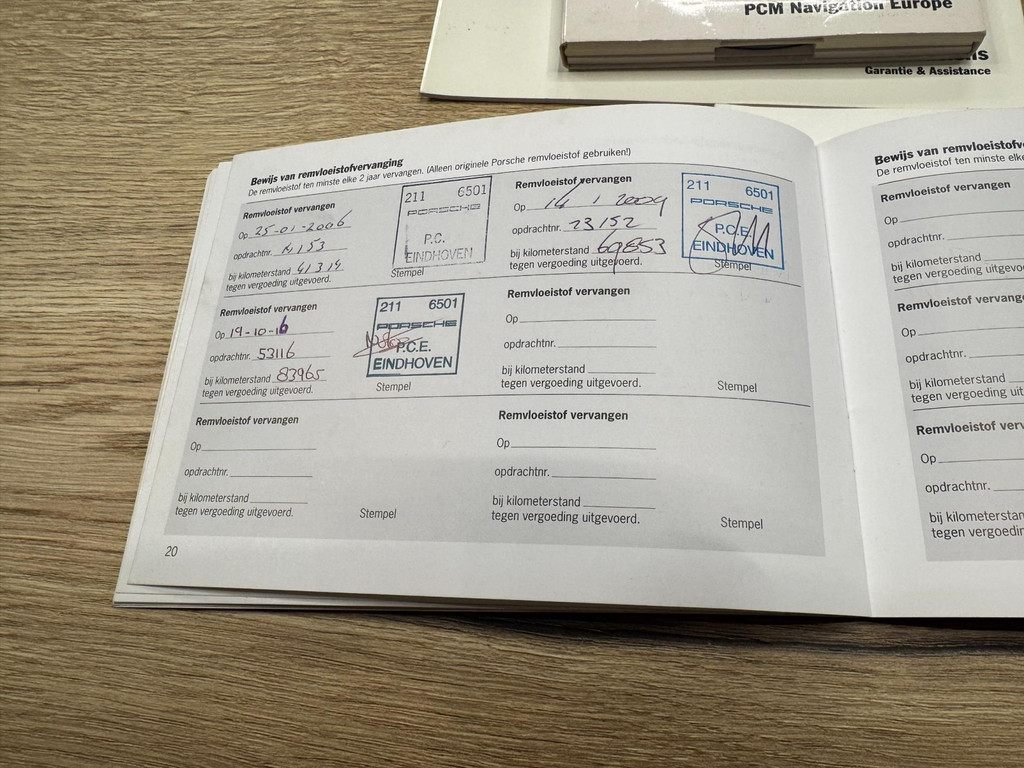 PCM Navigation Europe
Garantie & Assistance
Bewijs van remvloeistofvervanging
De remvloeistof ten minste elke 2 jaar vervangen. (Alleen originele Porsche remvloeistof gebruiken!)
Remvloeistof vervangen
Op 25-01-2006
opdrachtnr.
bij kilometerstand 41314
tegen vergoeding uitgevoerd.
211 6501
PORSCHE
P.C.
EINDHOVEN
Stempel
Remvloeistof vervangen
Op 14 1 2009
opdrachtnr. 23152
bij kilometerstand 69853
tegen vergoeding uitgevoerd.
211 6501
PORSCHE
P.C.E.
EINDHOVEN
Stempel
Remvloeistof vervangen
Op 19-10-16
opdrachtnr. 53116
bij kilometerstand 83965
tegen vergoeding uitgevoerd.
211 6501
PORSCHE
P.C.E.
EINDHOVEN
Stempel
Remvloeistof vervangen
Op
opdrachtnr.
bij kilometerstand
tegen vergoeding uitgevoerd.
Stempel
Remvloeistof vervangen
Op
opdrachtnr.
bij kilometerstand
tegen vergoeding uitgevoerd.
Stempel
Remvloeistof vervangen
Op
opdrachtnr.
bij kilometerstand
tegen vergoeding uitgevoerd.
Stempel
20
Bewijs van
De remvloeistof ten minste
Remvloeistof vervangen
Op
opdrachtnr.
bij kilometerstand
tegen vergoeding
Remvloeistof
Op
opdrachtnr.
bij kilometerstand
tegen vergoeding
Remvloeistof
Op
opdrachtnr.
bij
tegen vergoeding